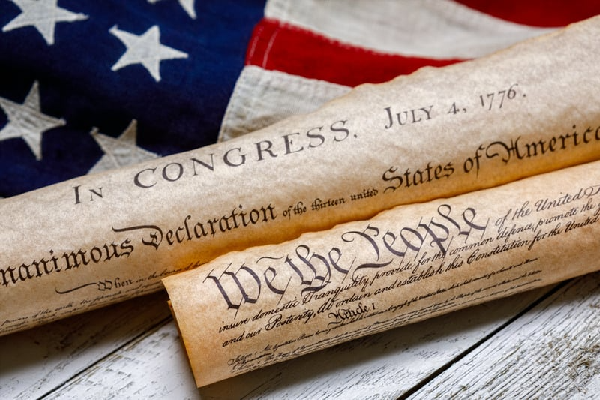 In CONGRESS. July 4, 1776.
nanimous Declaration of the thirteen united States of America
When
We the People of the United
insure domestic Tranquility, provide for the common defence, promote the
and our Posterity, do ordain and establish this Constitution for the United
Article I